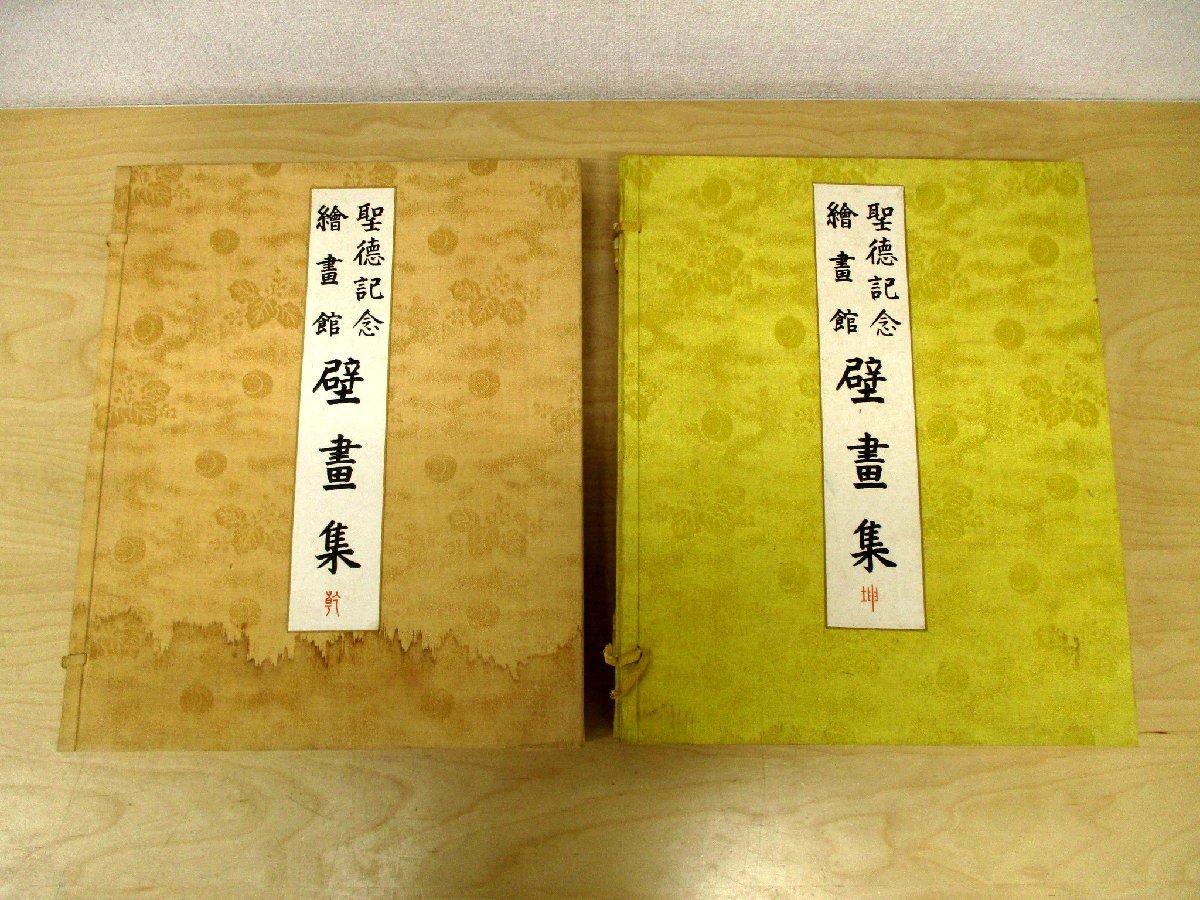 聖德記念
繪畫館
壁畫集
乾
聖德記念
繪畫館
壁畫集
坤